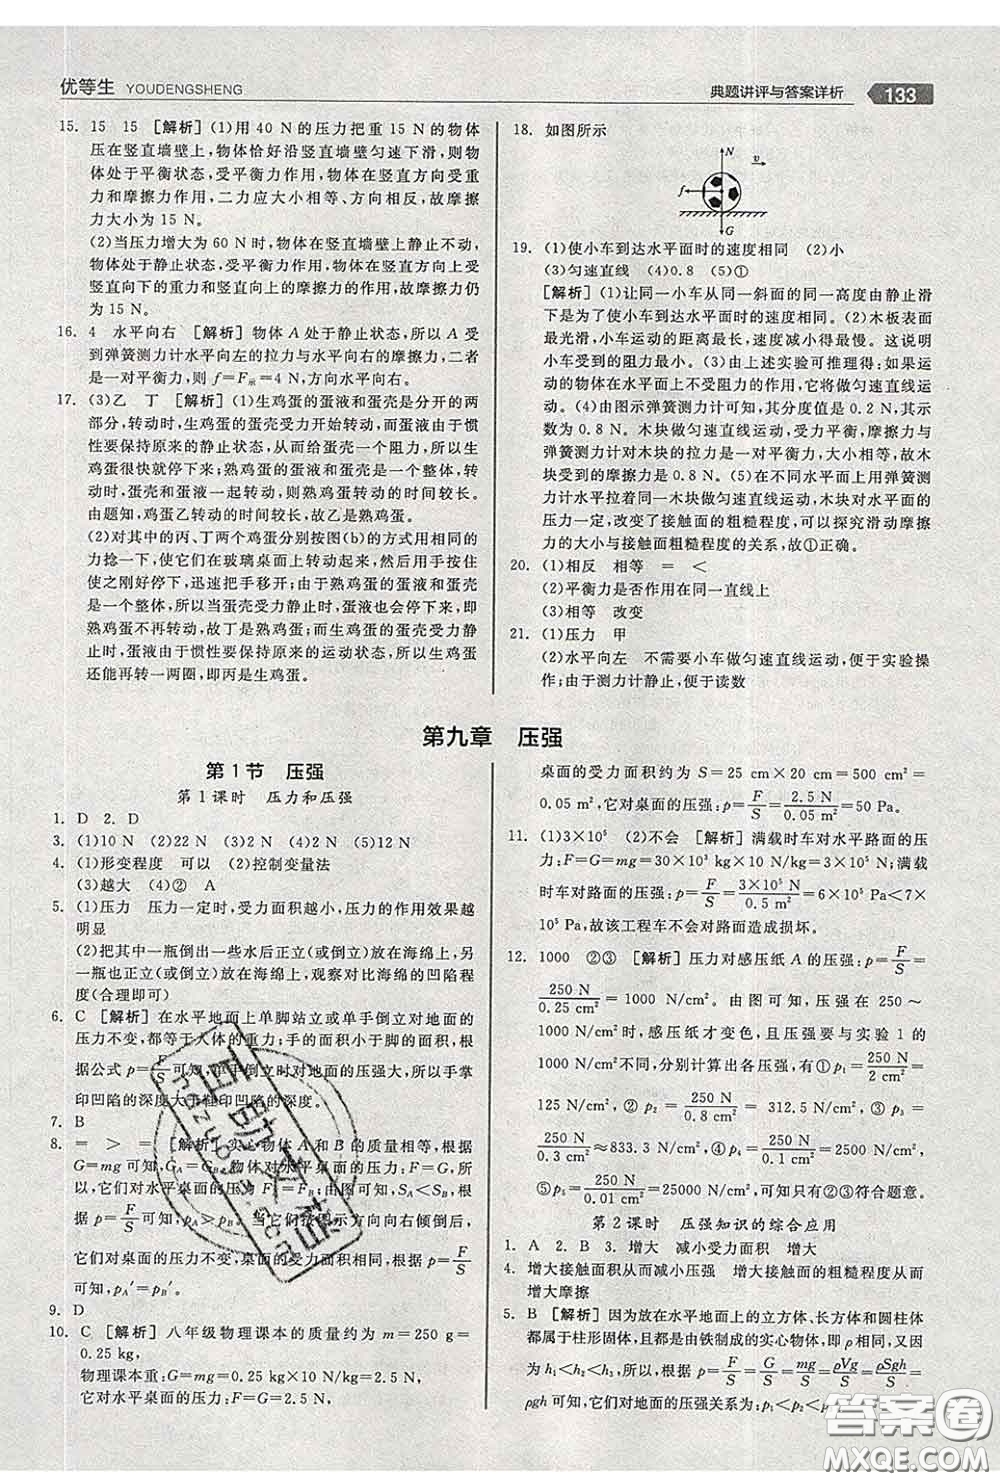 优等生 YOUDENGSHENG
典题讲评与答案详析 133
15. 15 15 [解析](1)用 40 N 的压力把重 15 N 的物体
压在竖直墙壁上,物体恰好沿竖直墙壁匀速下滑,则物
体处于平衡状态,受平衡力作用,物体在竖直方向受重
力和摩擦力作用,二力应大小相等、方向相反,故摩擦
力大小为 15 N。
(2)当压力增大为 60 N 时,物体在竖直方向上静止不动,
物体处于静止状态,受平衡力作用,物体的平衡力仍为
竖直向下的重力和竖直向上的摩擦力,故摩擦力仍
为 15 N。
16. 4 水平向右 [解析]物体 A 处于静止状态,所以 A 受
到弹簧测力计水平向左的拉力与水平向右的摩擦力,二者
是一对平衡力,则 f=F=4 N,方向水平向右。
17. (3)乙 丁 [解析](1)生鸡蛋的蛋液和蛋壳是分开的两
部分,转动时,生鸡蛋的蛋壳受力开始转动,而蛋液由于惯
性要保持原来的静止状态,从而给蛋壳一个阻力,所以生
鸡蛋很快就停下来;熟鸡蛋的蛋液和蛋壳是一个整体,转
动时,蛋壳和蛋液一起转动,则转动的时间较长。
由题知,鸡蛋乙转动的时间较长,故乙是熟鸡蛋。
(2)对其中的丙、丁两个鸡蛋分别按图(b)的方式用相同的
力捻一下,使它们在玻璃桌面上转动起来,然后用手按住
使之刚好停下,迅速把手移开;由于熟鸡蛋的蛋液和蛋壳
是一个整体,所以当蛋壳受力静止时,蛋液也会停止,即
熟鸡蛋不再转动,故丁是熟鸡蛋。而生鸡蛋的蛋壳受力静
止时,蛋液由于惯性要保持原来的运动状态,所以生鸡蛋
还能再转一两圈,即丙是生鸡蛋。
18. 如图所示
N
v
f
G
19. (1)使小车到达水平面时的速度相同 (2)小
(3)匀速直线 (4)0.8 (5)①
[解析](1)让同一小车从同一斜面的同一高度由静止滑
下是为了使小车到达水平面时的速度相同。(2)木板表面
最光滑,小车运动的距离最长,速度减小得最慢。这说明
小车受到的阻力最小。(3)由上述实验可推理得:如果运
动的物体在水平面上不受阻力的作用,它将做匀速直线
运动。(4)由图示弹簧测力计可知,其分度值是 0.2 N,其示
数为 0.8 N。木块做匀速直线运动,受力平衡,摩擦力与
弹簧测力计对木块的拉力是一对平衡力,二力相等,故木
块受到的摩擦力是 0.8 N。(5)在不同水平面上用弹簧测
力计水平拉着同一木块做匀速直线运动,木块对水平面的
压力一定,改变了接触面的粗糙程度,可以探究滑动摩擦
力的大小与接触面粗糙程度的关系,故①正确。
20. (1)相反 相等 = <
(2)平衡力是否作用在同一直线上
(3)相等 改变
21. (1)压力 甲
(2)水平向左 不需要小车做匀速直线运动,便于实验操
作;由于测力计静止,便于读数
第九章 压强
第 1 节 压强
第 1 课时 压力和压强
1. D 2. D
3. (1)10 N (2)22 N (3)2 N (4)2 N (5)12 N
4. (1)形变程度 可以 (2)控制变量法
(3)越大 (4)② A
5. (1)压力 压力一定时,受力面积越小,压力的作用效果越
明显
(2)把其中一瓶倒出一些水后正立(或倒立)放在海绵上,另
一瓶也正立(或倒立)放在海绵上,观察对比海绵的凹陷程
度(合理即可)
6. C [解析]在水平地面上单脚站立或单手倒立对地面的
压力不变,都等于人体的重力;手的面积小于脚的面积,根
据公式 p=F/S 可知,单手倒立时对地面的压强大,所以手掌
印凹陷的深度大于鞋印凹陷的深度。
7. B
8. = > = [解析]实心物体 A 和 B 的质量相等,根据
G=mg 可知,G_A=G_B,物体对水平桌面的压力 F_A=F_B;由图可知,S_A<S_B,
根据 p=F/S 可知,p_A>p_B。当它们按图示方向向右倾倒后,
它们对桌面的压力不变,桌面的受力面积也相等,根据 p=F/S
可知,p_A′=p_B′。
9. D
10. C [解析]八年级物理课本的质量约为 m=250 g=
0.25 kg,
物理课本重:G=mg=0.25 kg×10 N/kg=2.5 N,
它对水平桌面的压力:F=G=2.5 N,
桌面的受力面积约为 S=25 cm×20 cm=500 cm²=
0.05 m²,它对桌面的压强:p=F/S=2.5 N/0.05 m²=50 Pa。
11. (1)3×10⁵ (2)不会 [解析]满载时车对水平路面的压
力:F=G=mg=30×10³ kg×10 N/kg=3×10⁵ N;满载
时车对路面的压强:p=F/S=3×10⁵ N/0.5 m²=6×10⁵ Pa<7×
10⁵ Pa,故该工程车不会对路面造成损坏。
12. 1000 ②③ [解析]压力对感压纸 A 的压强:p=F/S=
250 N/0.25 cm²=1000 N/cm²。由图可知,压强在 250～
1000 N/cm² 时,感压纸才变色,且压强要与实验 1 的
1000 N/cm² 不同,分别计算出各压强,有①p₁=250 N/2 cm²=
125 N/cm²,②p₂=250 N/0.8 cm²=312.5 N/cm²,③p₃=
250 N/0.3 cm²≈833.3 N/cm²,④p₄=250 N/0.1 cm²=2500 N/cm²,
⑤p₅=250 N/0.01 cm²=25000 N/cm²,可知只有②③符合题意。
第 2 课时 压强知识的综合应用
1. A 2. B 3. 增大 减小受力面积 增大
4. 增大接触面积从而减小压强 增大接触面的粗糙程度从而
增大摩擦
5. B [解析]因为放在水平地面上的立方体、长方体和圆柱体
都属于柱形固体,且由铁制成的实心物体,即 ρ相同,又因
为 h₁<h₂<h₃,所以,根据 p=F/S=G/S=mg/S=ρVg/S=ρSgh/S=
ρgh 可知,它们对地面的压强关系为:p₁<p₂<p
互助文档
答案圈
MXQE.COM